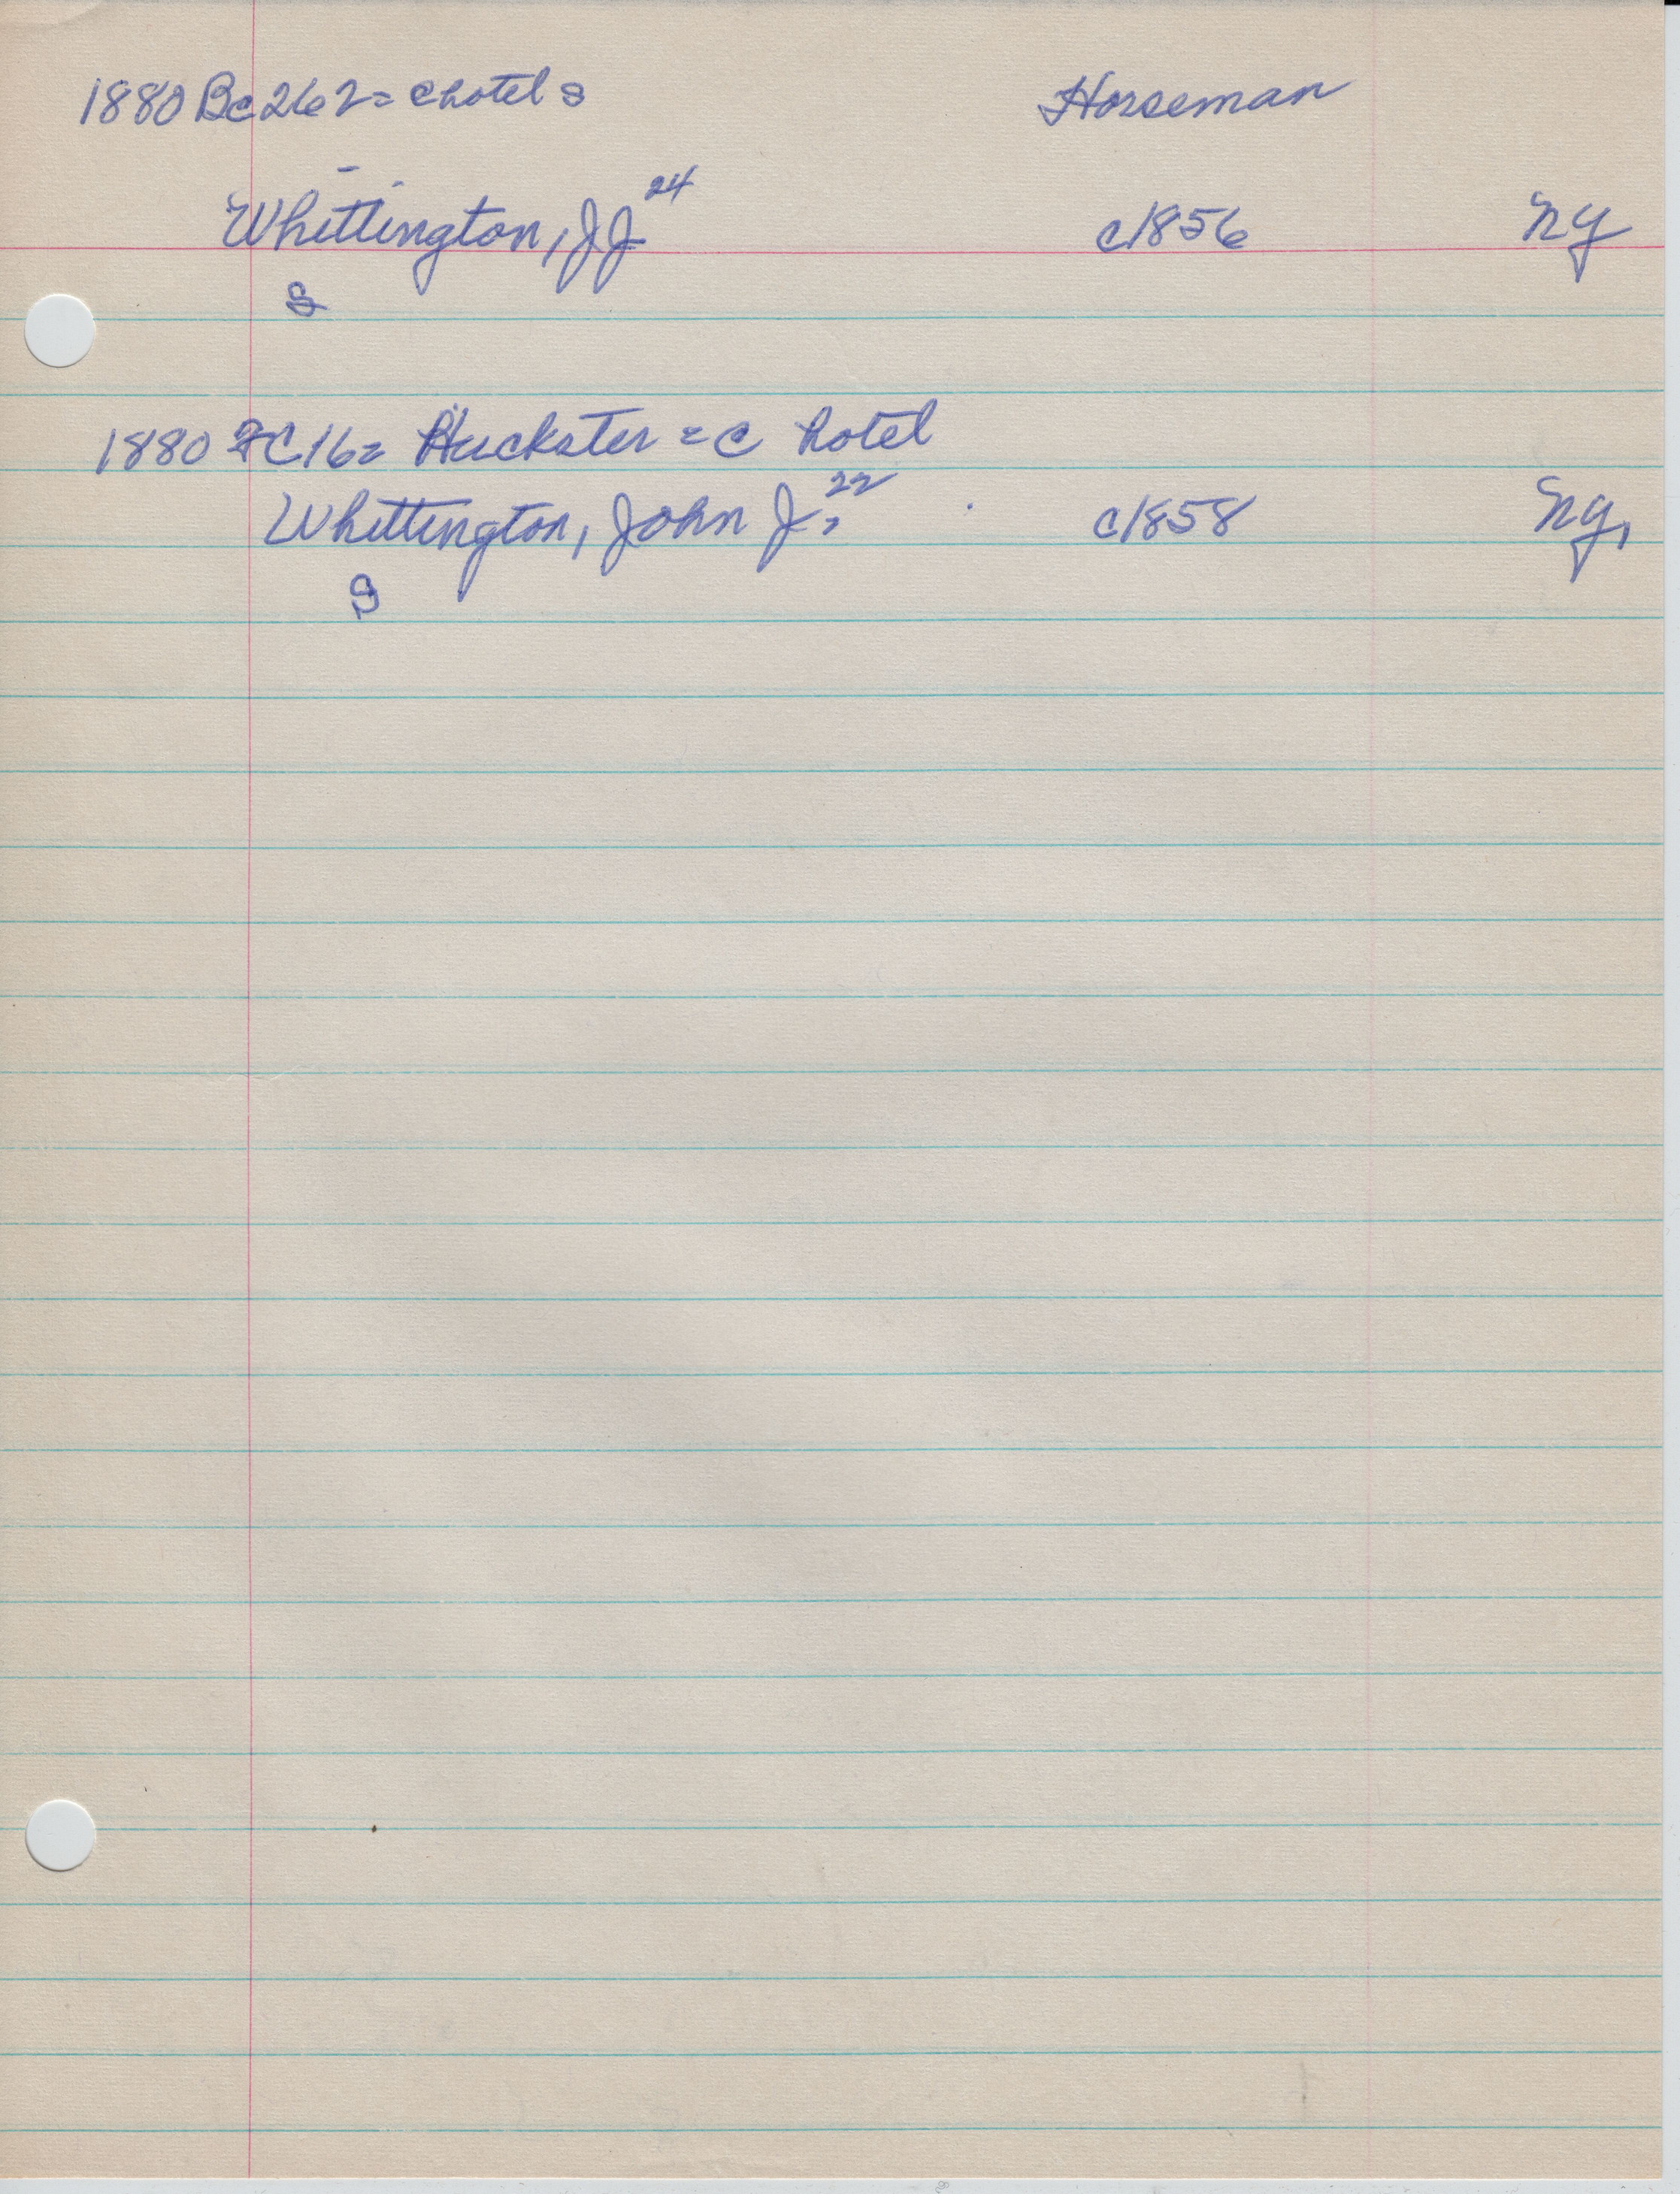 1880 Bc 262 = c hotel s Horseman
Whittington, JJ 24 c1856 NY
S
1880 FC 16 = Huckster = c hotel
Whittington, John J. 22 c1858 NY,
S